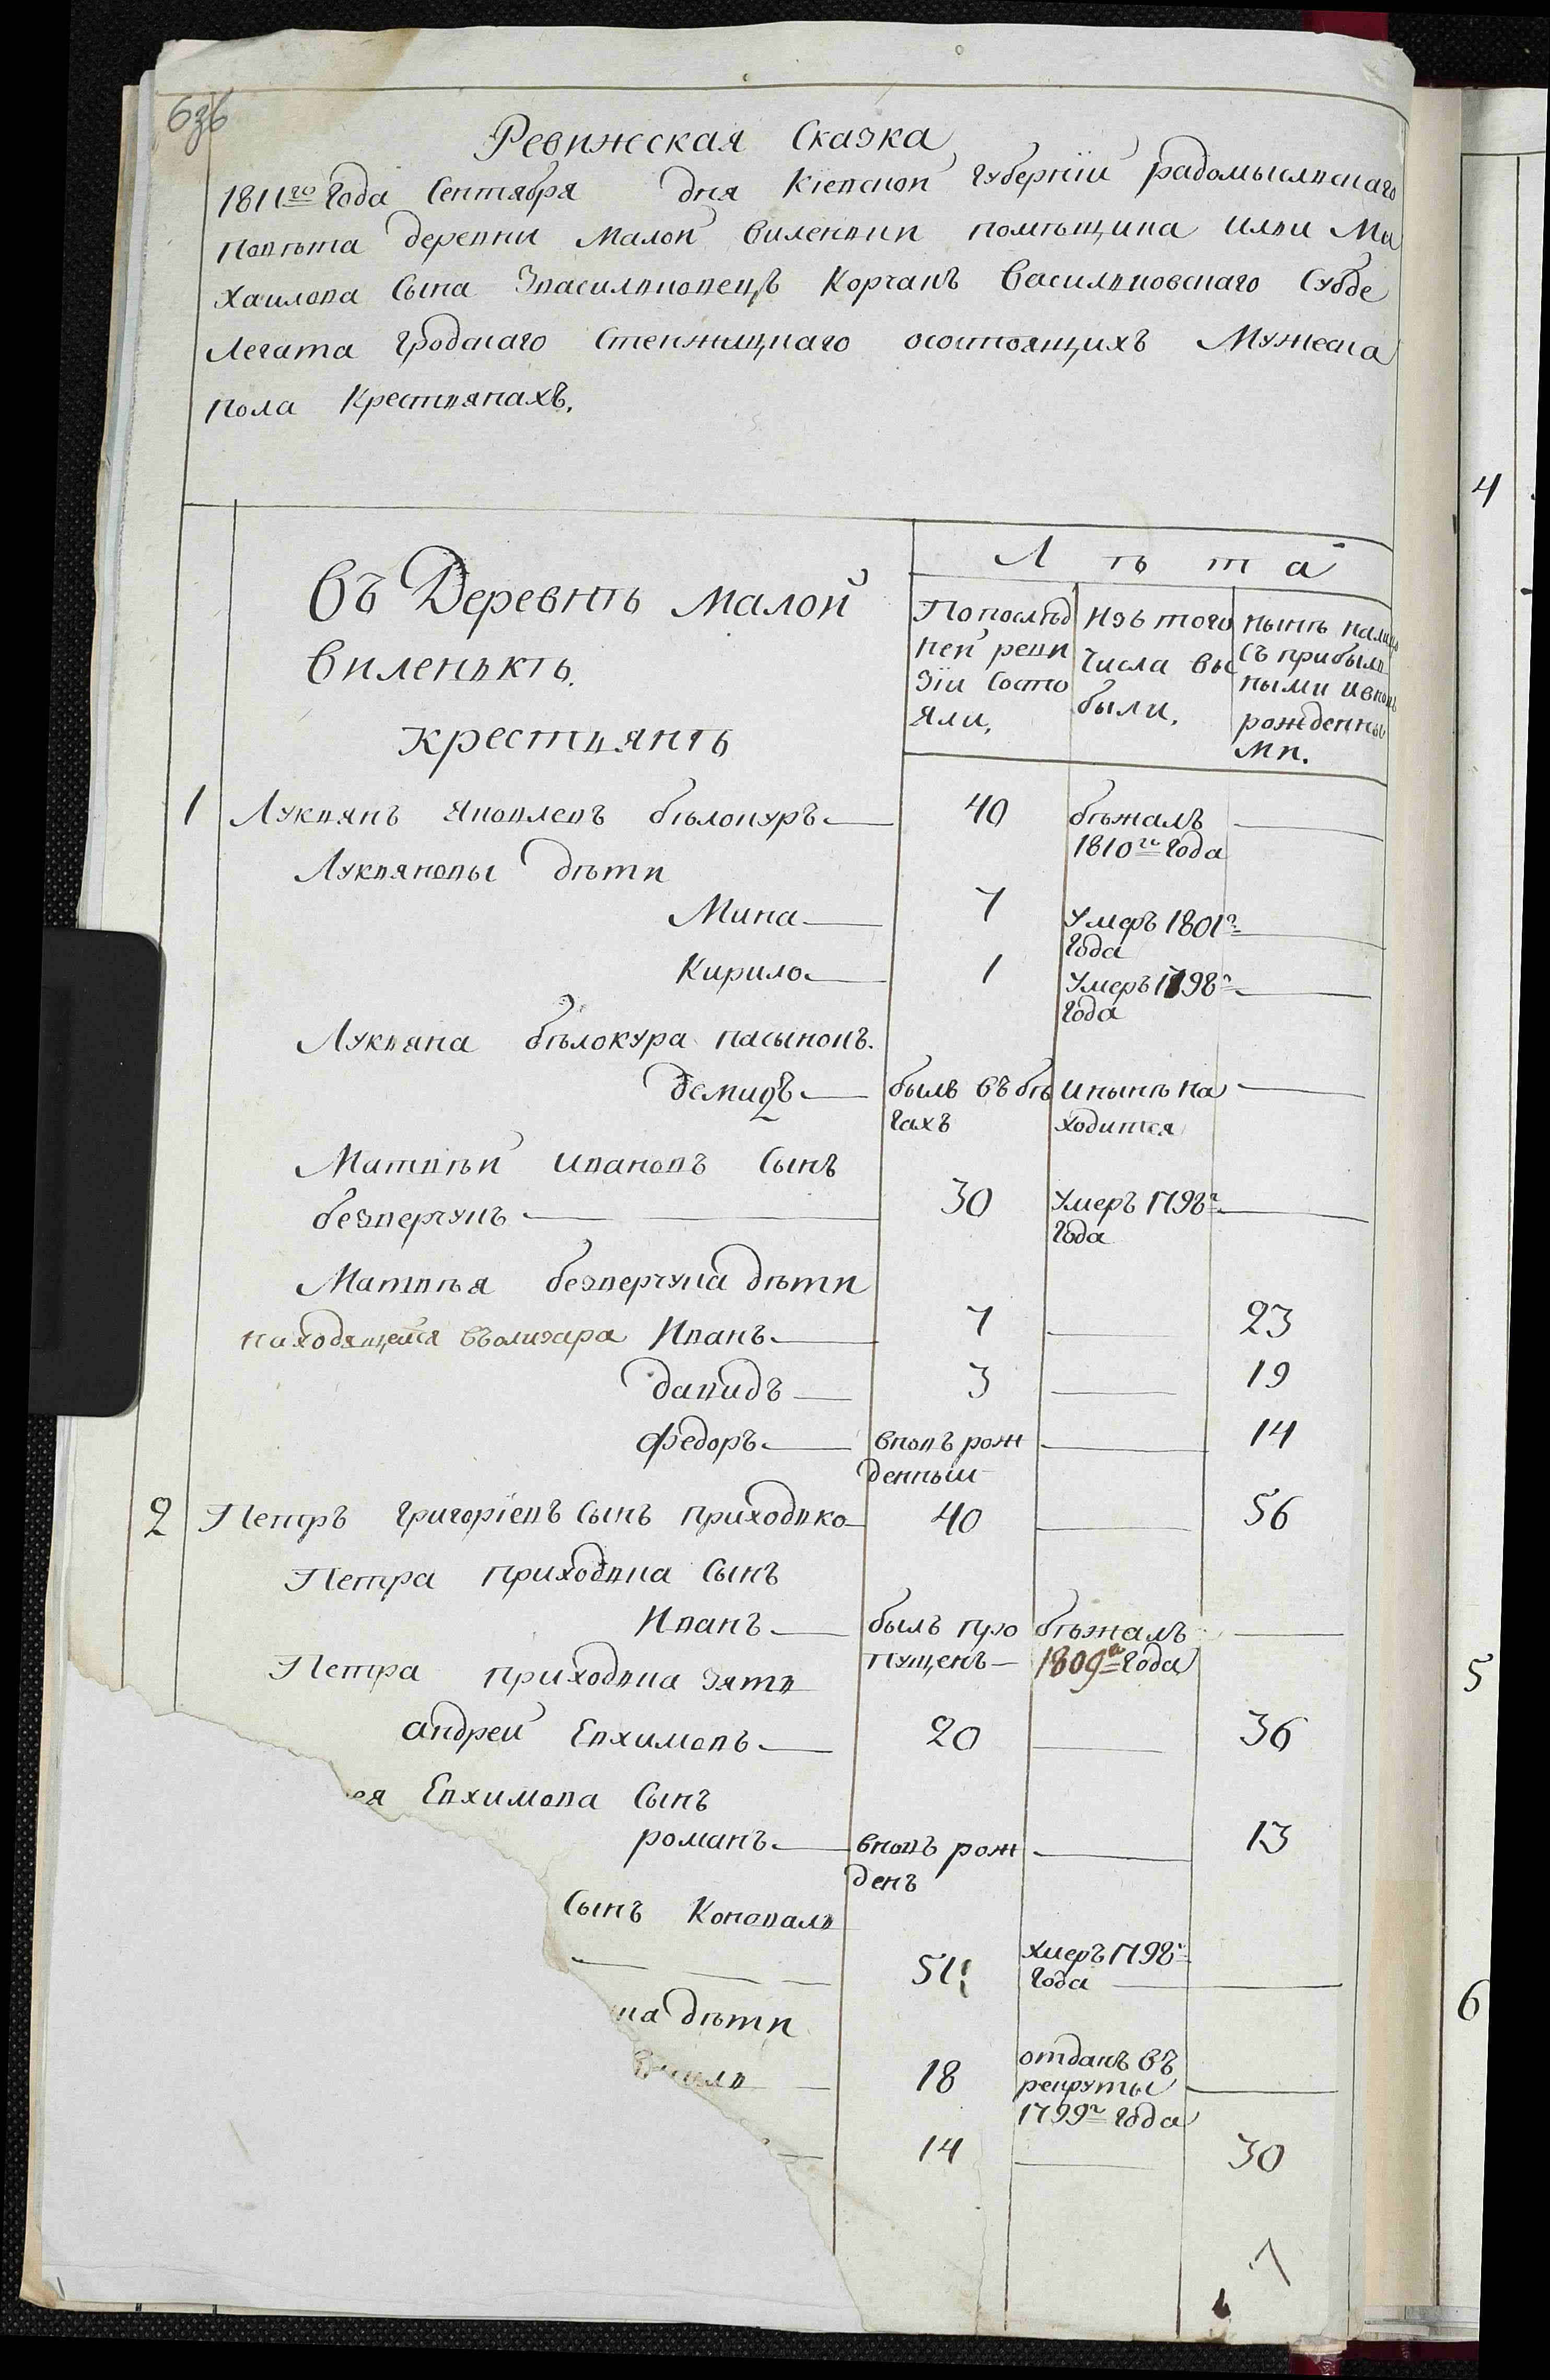 636
Ревижская Сказка
1811го Года Сентября дня Кіевской Губерніи радомысльскаго
повѣта деревни Малой Виленьки помѣщика Ильи Ми
хаилова Сына Корчакъ Васильковскаго Субде
легата гродскаго осостоящихъ Мужеска
пола Крестьянахъ.
4
Въ Деревнѣ Малой
Виленькѣ.
крестьянъ
Л ѣ т а
Попослѣд
ней реви
зіи Состо
яли,
Изъ того
Числа вы
были.
нынѣ налицо
Съ прибылы
ными ивновь
рожденны
ми.
1 Лукьянъ Яковлевъ бѣлокуръ 40 бѣжалъ
1810го Года
Лукьяновы дѣти
Мина 7 Умеръ 1801г
Года
Кирило 1 Умеръ 1798г
Года
Лукьяна бѣлокура пасынокъ.
демидъ былъ въ бѣ Инынѣ на
гахъ ходится
Матвѣй Ивановъ Сынъ
безперчукъ 30 Умеръ 1798г
Года
Матвѣя безперчука дѣти
находящейся Иванъ 7 23
давидъ 3 19
федоръ вновь рож 14
денный
2 Петръ Григоріевъ Сынъ приходько 40 56
Петра приходька Сынъ
Иванъ былъ про бѣжалъ
пущенъ 1809го Года
5
Петра приходька зять
андрей Евхимовъ 20 36
ея Евхимова Сынъ
романъ вновь рож 13
денъ
Сынъ Коновалъ
51 Умеръ 1798г
Года
6
ка дѣти
18 отданъ въ
рекруты
1799г Года
14 30